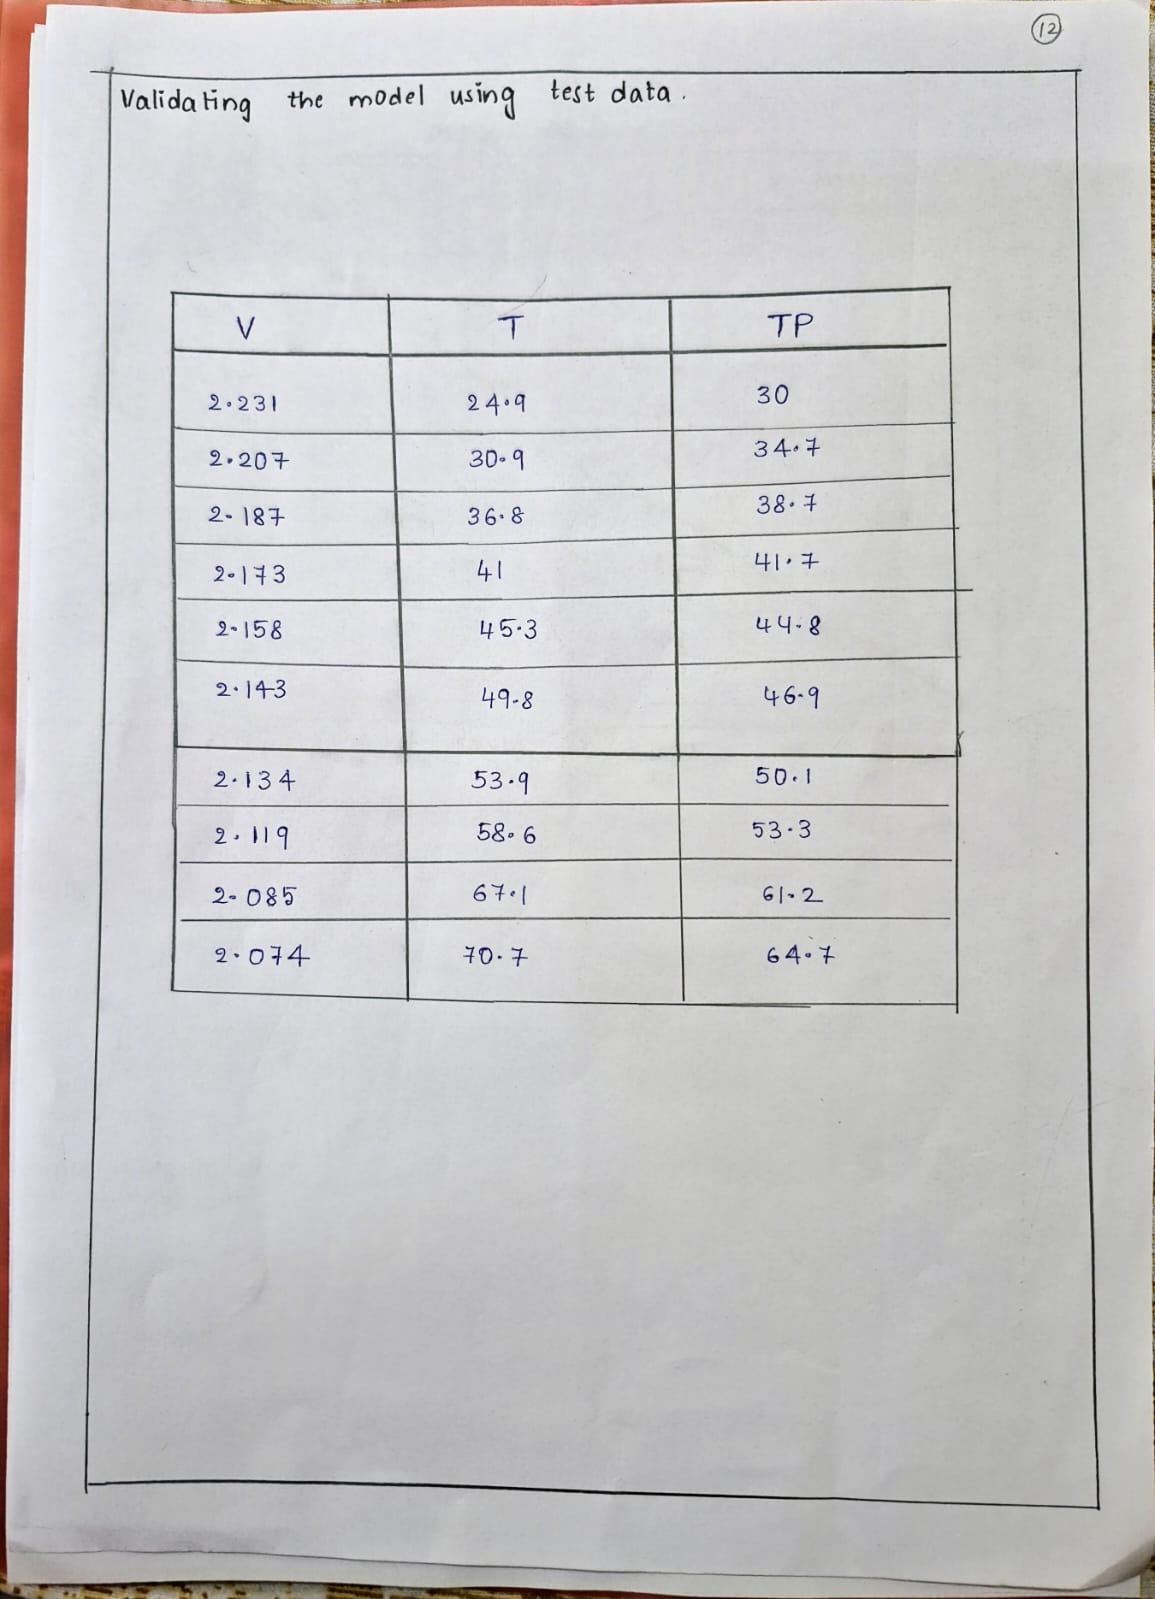 12
Validating the model using test data.
V T TP
2.231 24.9 30
2.207 30.9 34.7
2.187 36.8 38.7
2.173 41 41.7
2.158 45.3 44.8
2.143 49.8 46.9
2.134 53.9 50.1
2.119 58.6 53.3
2.085 67.1 61.2
2.074 70.7 64.7